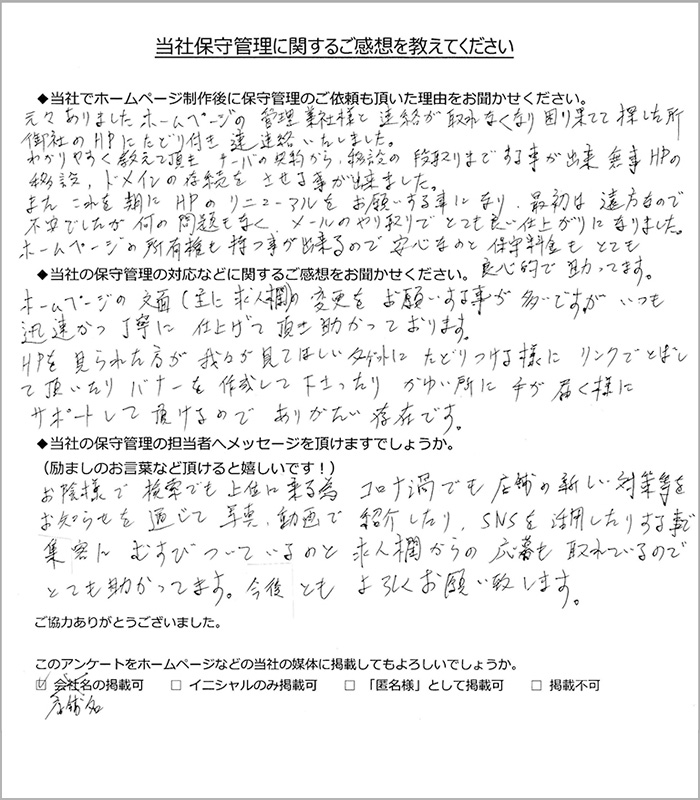 当社保守管理に関するご感想を教えてください
◆当社でホームページ制作後に保守管理のご依頼も頂いた理由をお聞かせください。
元々ありましたホームページの管理業社様と連絡が取れなくなり困り果てて探した所
御社のHPにたどり付き速連絡いたしました。
わかりやすく教えて頂き サーバの契約から、移設の段取りまでする事が出来 無事HPの
移設、ドメインの存続をさせる事が出来ました。
また これを期に HPのリニューアルをお願いする事になり、最初は遠方なので
不安でしたが何の問題もなく、メールのやり取りでとても良い仕上がりになりました。
ホームページの所有権も持つ事が出来るので安心なのと保守料金もとても
良心的で助ってます。
◆当社の保守管理の対応などに関するご感想をお聞かせください。
ホームページの文面(主に求人欄)の変更をお願いする事が多いですが いつも
迅速かつ丁寧に仕上げて頂き助かっております。
HPを見られた方が我々が見てほしいターゲットにたどりつける様にリンクでとばし
て頂いたり バナーを作成して下さったり かゆい所に手が届く様に
サポートして頂けるので ありがたい存在です。
◆当社の保守管理の担当者へメッセージを頂けますでしょうか。
(励ましのお言葉など頂けると嬉しいです！)
お陰様で検索でも上位に乗る為 コロナ渦でも店舗の新しい対策等を
お知らせを通じて写真、動画で紹介したり、SNSを活用したりする事で
集客にむすびついているのと求人欄からの応募も取れているので
とても助かってます。今後ともよろしくお願い致します。
ご協力ありがとうございました。
このアンケートをホームページなどの当社の媒体に掲載してもよろしいでしょうか。
☑ 会社名の掲載可 □ イニシャルのみ掲載可 □ 「匿名様」として掲載可 □ 掲載不可
店舗名